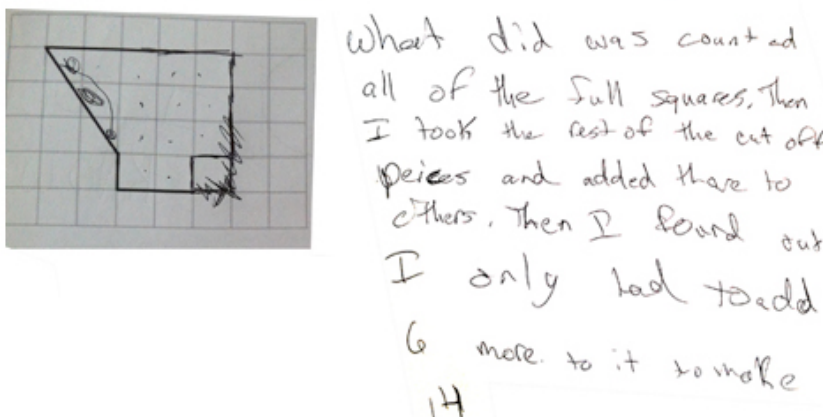 What did was counted
all of the full squares. Then
I took the rest of the cut off
peices and added thare to
others. Then I found out
I only had to add
6 more to it to make
14